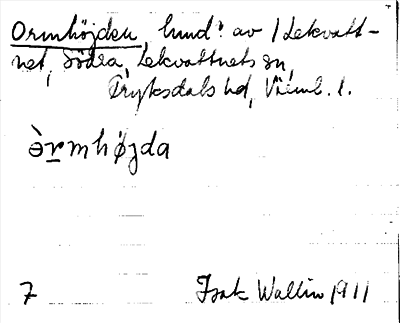 Ormhöjden, hmd? av / Lekvatt-
net, Södra, Lekvattnets sn,
Fryksdals hd, Värml. l.
ərmhøjda
7 Isak Wallin 1911